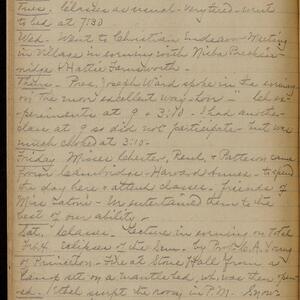 Tues. Classes as usual - very tired - went
to bed at 7:30
Wed - Went to Christian Endeavor Meeting
in Village in evening with
& Hattie Farnsworth -
Thurs - Pres. Joseph Ward spoke in the evening
on "The more excellent way" - 
periments at 9 & 3:10 - I had another
class at 9 so did not participate - but was
much choked at 3:10 -
Friday Misses Chester, Reed, & Patteson came
from Cambridge - Harvard Annex - to spend
the day here & attend classes - friends of
Miss Eaton's - We entertained them to the
best of our ability -
Sat. Classes. Lecture in evening on Total
Eclipses of the Sun - by Prof. C. A. Young
of Princeton - Fire at Stone Hall from a
being set on a
swept the room, in P.M. Snow